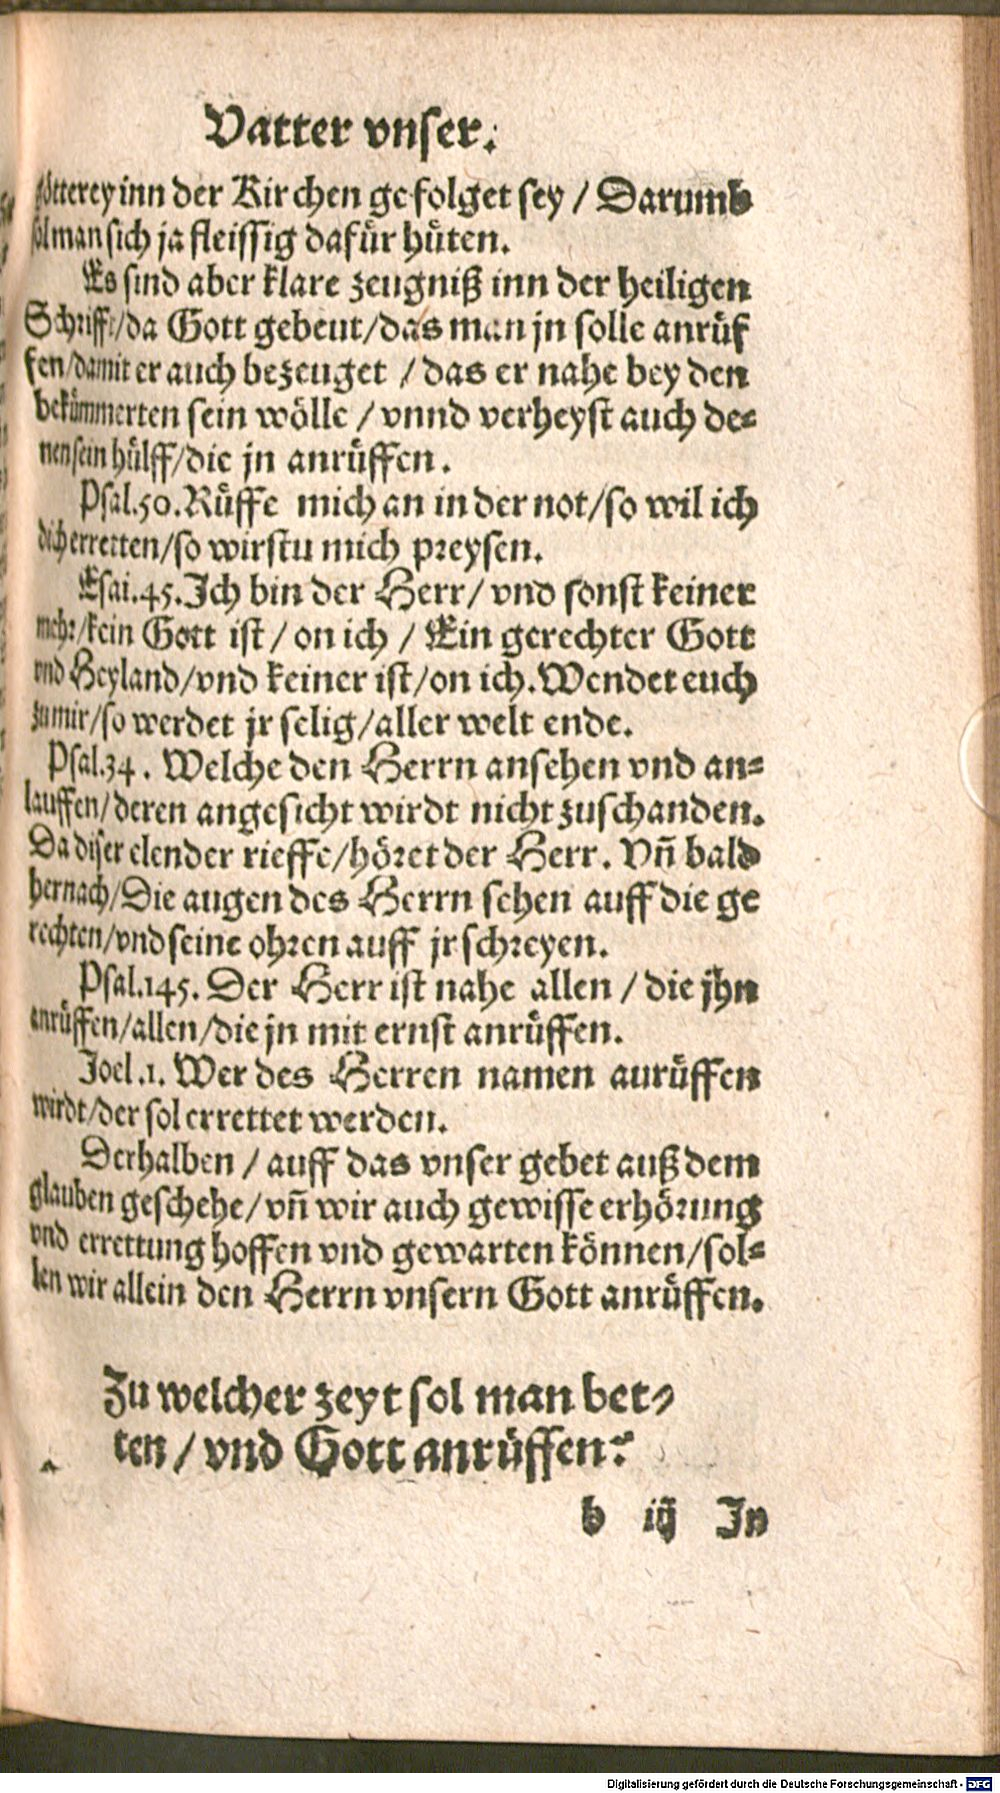 Vatter vnser.
götterey inn der Kirchen gefolget sey / Darumb
sol man sich ja fleissig dafür hüten.
Es sind aber klare zeugniß inn der heiligen
Schrifft/da Gott gebeut/das man jn solle anrüf
fen/damit er auch bezeuget / das er nahe bey den
bekümmerten sein wölle / vnnd verheyst auch de-
nen sein hülff/die jn anrüffen.
Psal.50. Rüffe mich an in der not/so wil ich
dich erretten/so wirstu mich preysen.
Esai.45. Ich bin der Herr/ vnd sonst keiner
mehr/kein Gott ist / on ich / Ein gerechter Gott
vnd Heyland/vnd keiner ist/on ich. Wendet euch
zu mir/so werdet jr selig/aller welt ende.
Psal.34. Welche den Herrn ansehen vnd an-
lauffen/deren angesicht wirdt nicht zuschanden.
Da diser elender rieffe/höret der Herr. Vñ bald
hernach/Die augen des Herrn sehen auff die ge
rechten/vnd seine ohren auff jr schreyen.
Psal.145. Der Herr ist nahe allen / die jhn
anrüffen/allen/die jn mit ernst anrüffen.
Joel.1. Wer des Herren namen auruffen
wirdt/der sol errettet werden.
Derhalben / auff das vnser gebet auß dem
glauben geschehe/vñ wir auch gewisse erhörung
vnd errettung hoffen vnd gewarten können/sol-
len wir allein den Herrn vnsern Gott anrüffen.
Zu welcher zeyt sol man bet-
ten / vnd Gott anrüffen?
b iij In
Digitalisierung gefördert durch die Deutsche Forschungsgemeinschaft - DFG